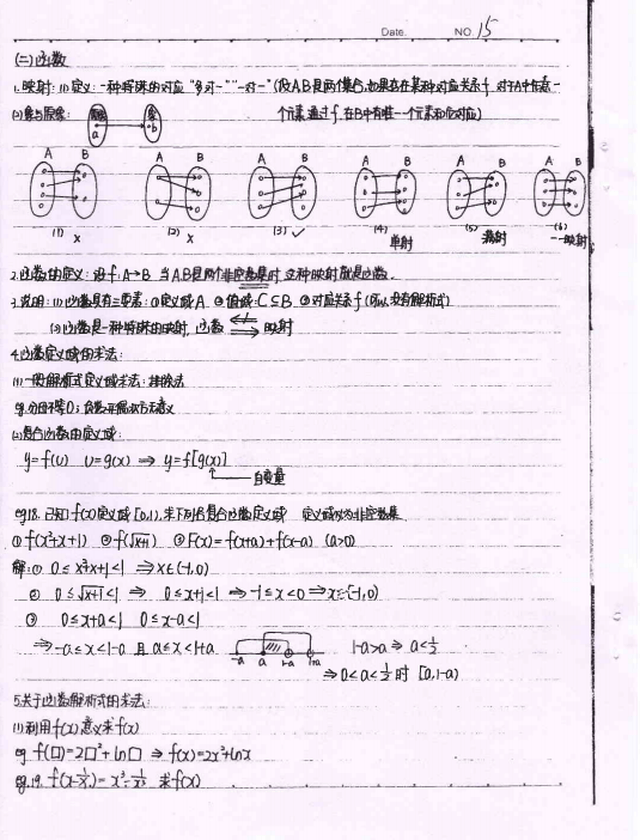 Date. NO. 15
(二)函数
1.映射:(1)定义:一种特殊的对应 "多对一""一对一"(设A B是两个集合,如果存在某种对应关系f,对于A中任意一
个元素,通过f,在B中有唯一一个元素和它对应)
(2)象与原象: 原象 a 象 b
A B A B A B A B A B A B
(1) × (2) × (3) ✓ (4) 单射 (5) 满射 (6) 一一映射
2.函数的定义:设f:A→B 当A B是两个非空数集时,这种映射就是函数.
3.说明:(1)函数具有三要素:①定义域A ②值域C⊆B ③对应关系f(可以没有解析式)
(2)函数是一种特殊的映射,函数 ⇍ ⇒ 映射
4.函数定义域的求法:
(1)一般解析式定义域求法:排除法
eg.分母不等0;负数开偶次方无意义
(2)复合函数的定义域:
y=f(u) u=g(x) ⇒ y=f[g(x)]
自变量
eg18.已知f(x)定义域[0,1),求下列各复合函数定义域 定义域必为非空数集
①f(x²+x+1) ②f(√x+1) ③F(x)=f(x+a)+f(x-a) (a>0)
解:① 0≤x²+x+1<1 ⇒x∈(-1,0)
② 0≤√x+1<1 ⇒ 0≤x+1<1 ⇒-1≤x<0⇒x∈[-1,0)
③ 0≤x+a<1 0≤x-a<1
⇒-a≤x<1-a 且 a≤x<1+a -a a 1-a 1+a 1-a>a ⇒ a<½
⇒0<a<½时 [a,1-a)
5.关于函数解析式的求法:
(1)利用f(x)意义求f(x)
eg f(□)=2□²+ln□ ⇒ f(x)=2x²+lnx
eg.19. f(x-1/x)= x³-1/x³ 求f(x)